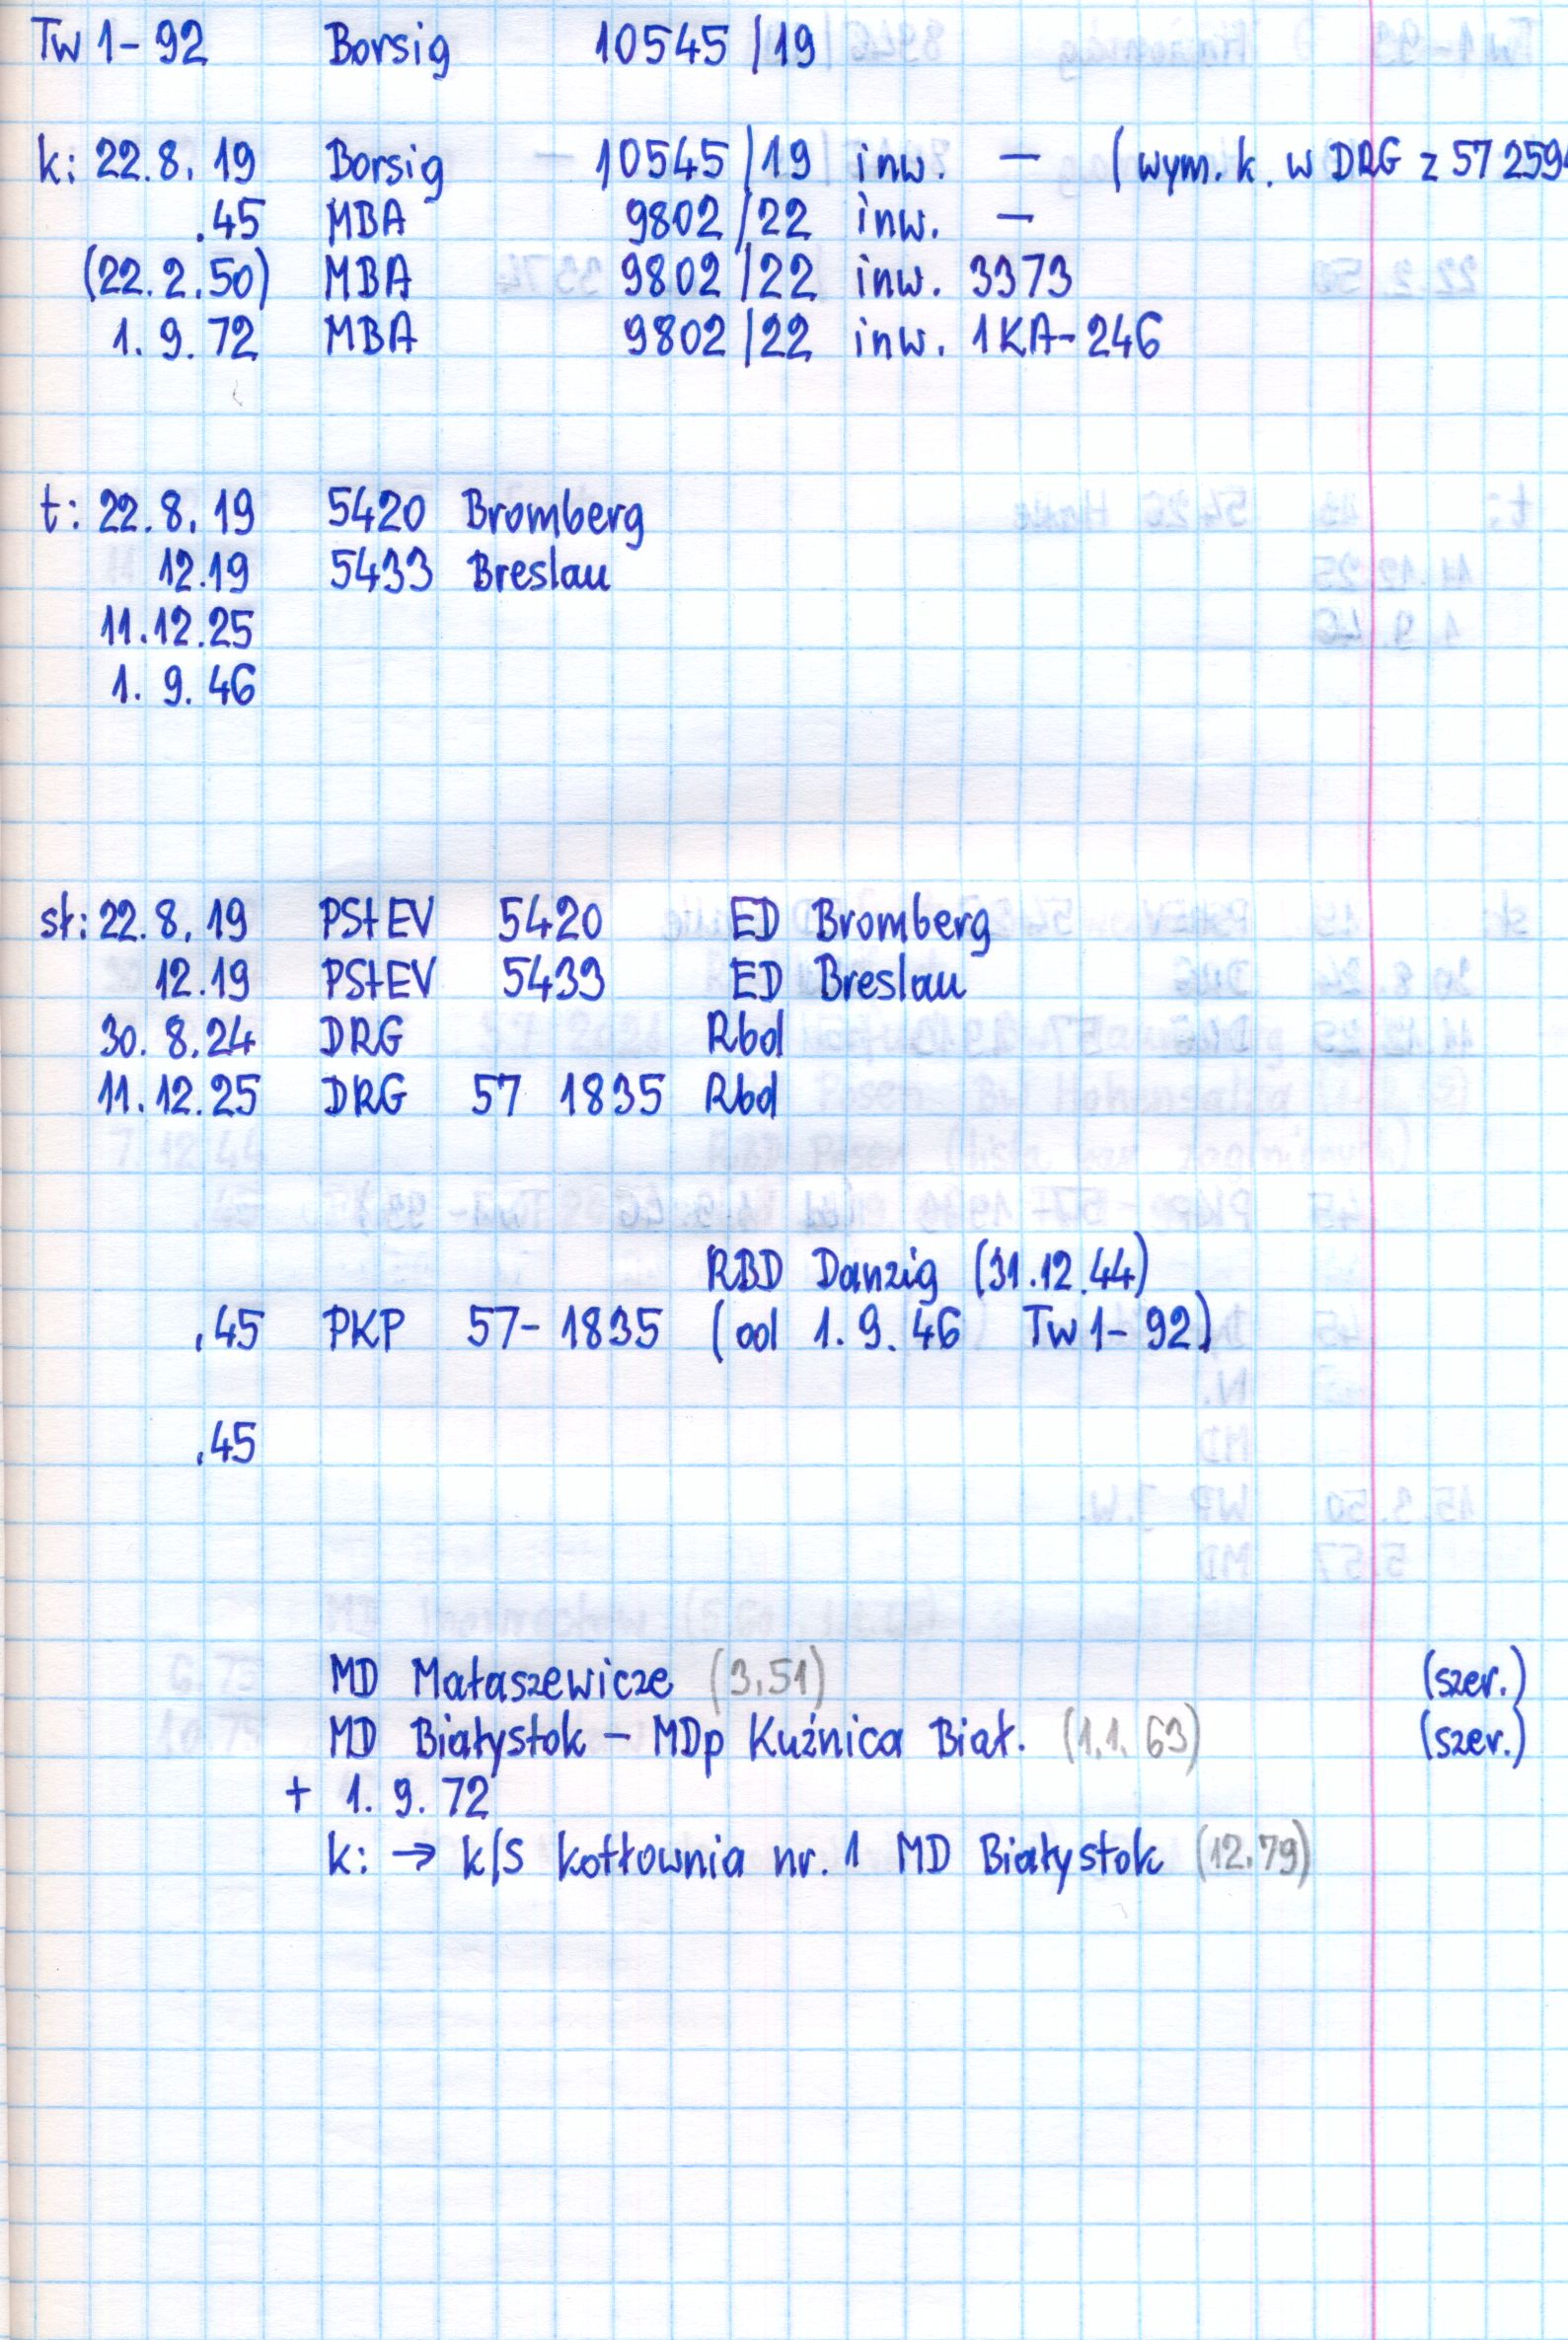 Tw 1-92 Borsig 10545/19
k: 22.8.19 Borsig 10545/19 inw. — (wym. k. w DRG z 57 2594
.45 MBA 9802/22 inw. —
(22.2.50) MBA 9802/22 inw. 3373
1.9.72 MBA 9802/22 inw. 1KA-246
t: 22.8.19 5420 Bromberg
12.19 5433 Breslau
11.12.25
1.9.46
st: 22.8.19 PStEV 5420 ED Bromberg
12.19 PStEV 5433 ED Breslau
30.8.24 DRG Rbd
11.12.25 DRG 57 1835 Rbd
RBD Danzig (31.12.44)
.45 PKP 57-1835 (od 1.9.46 Tw 1-92)
.45
MD Małaszewicze (3.51) (szer.)
MD Białystok – MDp Kuźnica Biał. (1.1.63) (szer.)
+ 1.9.72
k: → k/S kotłownia nr. 1 MD Białystok (12.79)